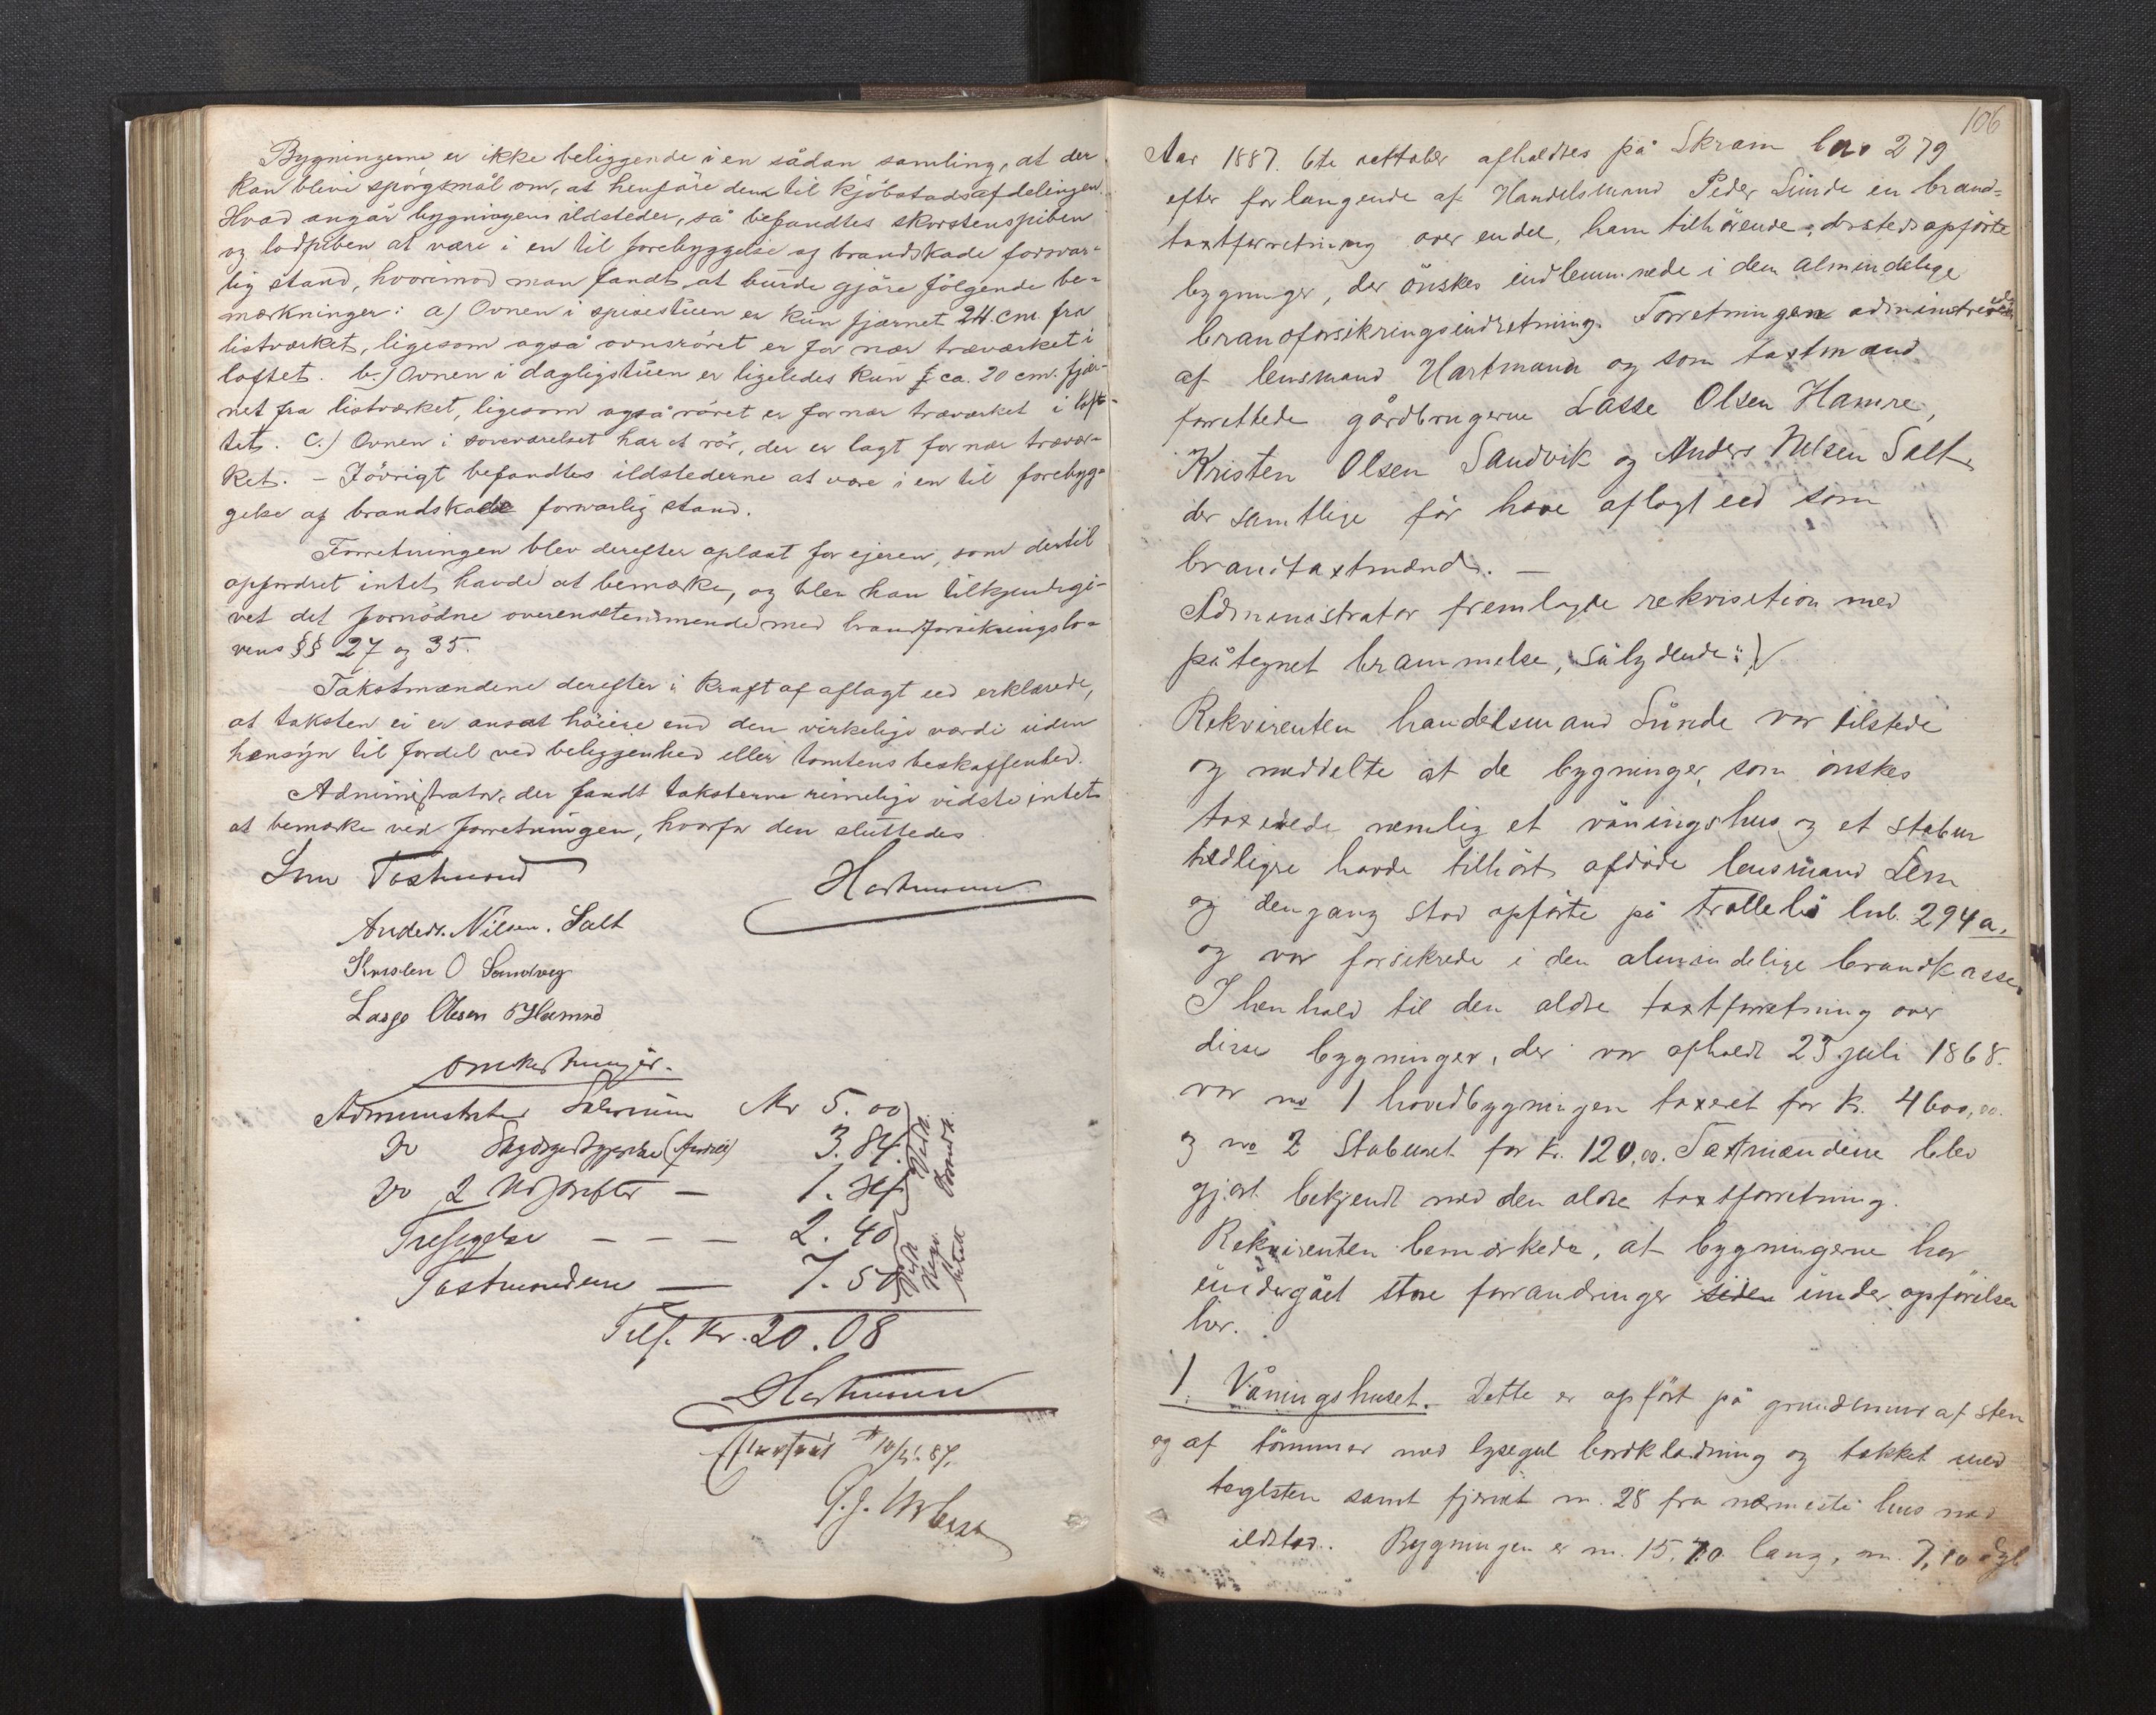 Bygningerne er ikke beliggende i en sådan samling, at der
kan blive spörgsmål om, at henföre dem til kjöbstadsafdelingen.
Hvad angår bygningens ildsteder, så befandtes skorstenspiben
og lodpiben at være i en til forebyggelse af brandskade forsvar-
lig stand, hvorimod man fandt, at burde gjöre fölgende be-
mærkninger: a) Ovnen i spisestuen er kun fjærnet 24. cm. fra
listværket, ligesom også ovnsröret er for nær træværket i
loftet. b.) Ovnen i dagligstuen er ligeledes kun ca. 20 cm. fjær-
net fra listværket, ligesom også röret er for nær træværket i lof-
tet. C.) Ovnen i soveværelset har et rör, der er lagt for nær trævær-
ket. – Iövrigt befandtes ildstederne at være i en til forebyg-
gelse af brandskade forsvarlig stand.
Forretningen blev derefter oplæst for ejeren, som dertil
opfordret intet havde at bemærke, og blev han tilkjendegi-
vet det fornödne overensstemmende med brandforsikringslo-
vens §§ 27 og 35.
Takstmændene derefter i kraft af aflagt eed erklærede,
at taksten ei er ansat höiere end den virkelige værdi uden
hensyn til fordel ved beliggenhed eller tomtens beskaffenhed.
Administrator, der fandt taksterne rimelige vidste intet
at bemærke ved forretningen, hvorfor den sluttedes
Som Taxtmænd
Hartmann
Anders. Nilsen. Salt
Kristen O Sandvig
Lasse Olsen Hamre
Omkostninger.
Administrator Salarium Kr 5.00
Do Skydsgodtgjørelse 3.84
Do 2 Udskrifter – 1.34
Tilsigelse – – – 2.40
Taxtmændene – 7.50
Tils. Kr. 20.08
Hartmann
106
Aar 1887. 6te oktober afholdtes på Skram lno 279
efter forlangende af Handelsmand Peder Sunde en brand=
taxtforretning over endel, ham tilhörende, dersteds opförte
bygninger, der önskes indlemmede i den almindelige
brandforsikringsindretning. Forretningen administreredes
af lensmand Hartmann og som taxtmænd
forrettede gårdbrugerne Lasse Olsen Hamre,
Kristen Olsen Sandvik og Anders Nilsen Salt
der samtlige før have aflagt eed som
brandtaxtmænd. –
Administrator fremlagde rekvisition med
påtegnet berammelse, sålydende:)
Rekvirenten handelsmand Sunde var tilstede
og meddelte at de bygninger, som önskes
taxerede nemlig et våningshus og et stabur
tidligere havde tilhört afdöde lensmand Lem
og dengang stod opförte på Trollebö lnb. 294a.
og var forsikrede i den almindelige brandkasse.
I henhold til den ældre taxtforretning over
disse bygninger, der var afholdt 23 juli 1868.
var no 1 hovedbygningen taxeret for Kr. 4600,00.
og no 2 Staburet for Kr. 120,00. Taxtmændene blev
gjort bekjendt med den ældre taxtforretning.
Rekvirenten bemærkede, at bygningerne har
undergået store forandringer siden under opförelsen
her.
1. Våningshuset. Dette er opfört på grundmur af sten
og af tömmer med lysegul bordklædning og tækket med
taglsten samt fjernet m. 28 fra nærmeste hus med
ildsted. Bygningen er m. 15,70 lang, m. 7,10 dyb